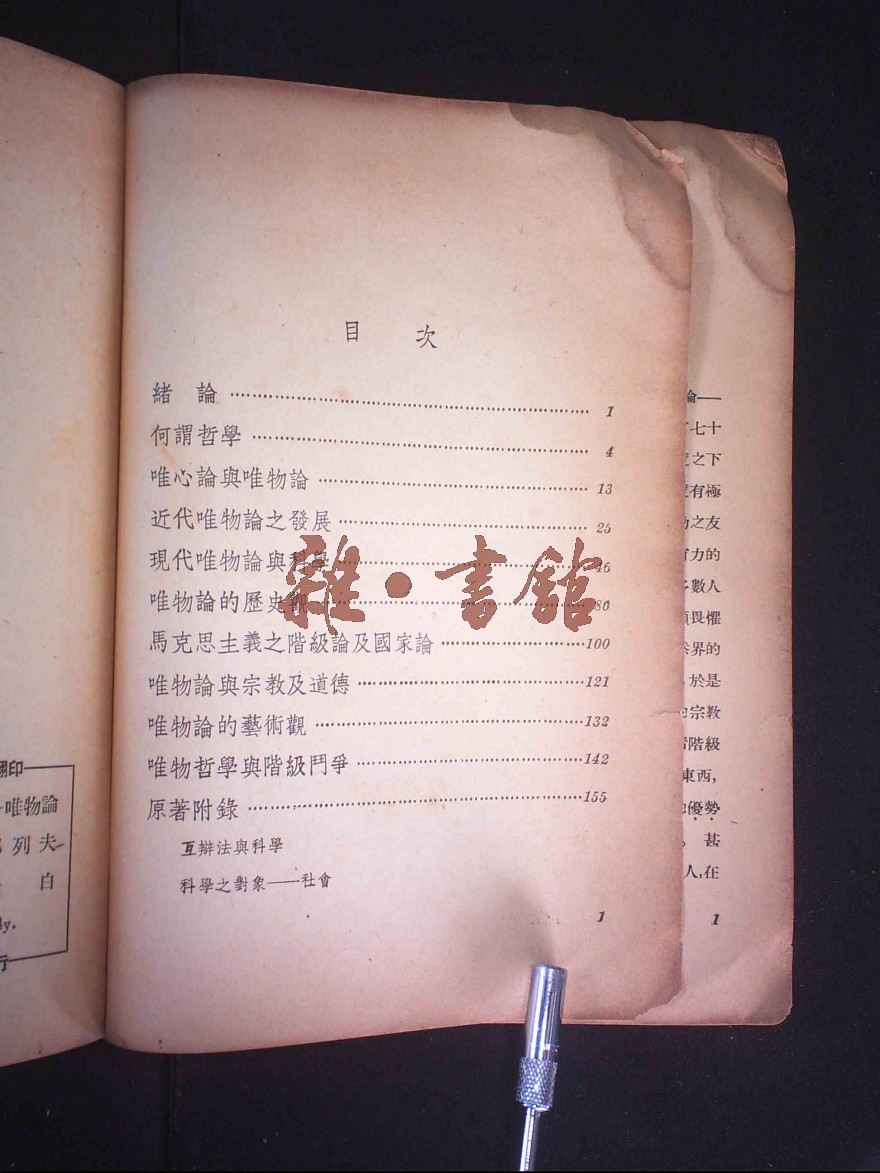 目 次
緒 論 1
何謂哲學 4
唯心論與唯物論 13
近代唯物論之發展 25
現代唯物論與科學 46
唯物論的歷史觀 80
馬克思主義之階級論及國家論 100
唯物論與宗教及道德 121
唯物論的藝術觀 132
唯物哲學與階級鬥爭 142
原著附錄 155
互辯法與科學
科學之對象——社會
1
雜·書館
翻印
唯物論
列夫
白
ly.
行
論—
七十
之下
有極
之友
力的
數人
畏懼
界的
於是
宗教
階級
東西,
優勢
甚
人,在
1